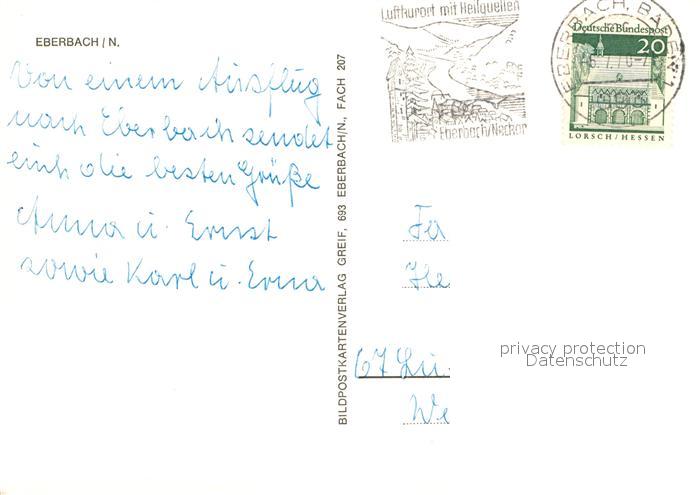 EBERBACH / N.
Von einem Ausflug
nach Eberbach sendet
euch die besten Grüße
Anna u. Ernst
sowie Karl u. Erna
BILDPOSTKARTENVERLAG GREIF, 693 EBERBACH/N., FACH 207
Luftkurort mit Heilquellen
Eberbach/Neckar
EBERBACH, BADEN
Deutsche Bundespost
20
LORSCH / HESSEN
Fa
He
67 Lu.
We
privacy protection
Datenschutz